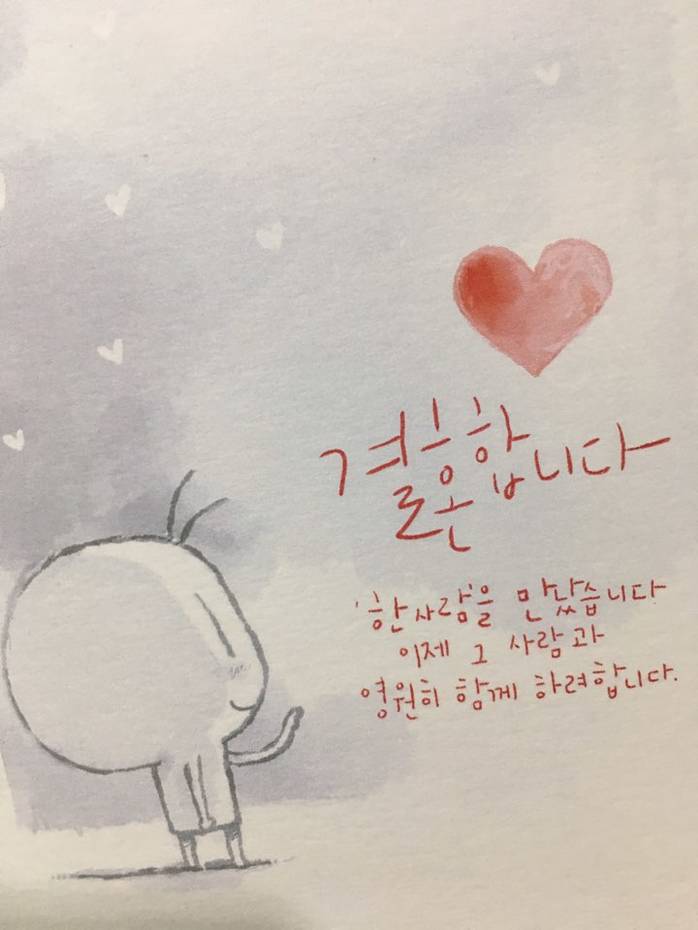 결혼합니다
'한사람'을 만났습니다
이제 그 사람과
영원히 함께 하려합니다.